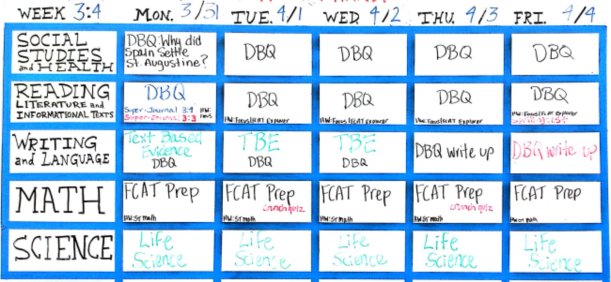 WEEK 3:4 MON. 3/31 TUE. 4/1 WED 4/2 THU. 4/3 FRI. 4/4
SOCIAL
STUDIES
and HEALTH
DBQ: Why did
Spain Settle
St. Augustine?
DBQ
DBQ
DBQ
DBQ
READING
LITERATURE and
INFORMATIONAL TEXTS
DBQ
Super-Journal 3:4
3:3
HW:
DBQ
HW: Focus FCAT Explorer
DBQ
HW: Focus FCAT Explorer
DBQ
HW: Focus FCAT Explorer
DBQ
HW: Focus FCAT Explorer
WRITING
and LANGUAGE
Text Based
Evidence
DBQ
TBE
DBQ
TBE
DBQ
DBQ write up
DBQ write up
MATH
FCAT Prep
HW: Sr math
FCAT Prep
crunch quiz
HW: Sr math
FCAT Prep
HW: Sr math
FCAT Prep
crunch quiz
HW: Sr math
FCAT Prep
HW: Sr math
SCIENCE
Life
Science
Life
Science
Life
Science
Life
Science
Life
Science